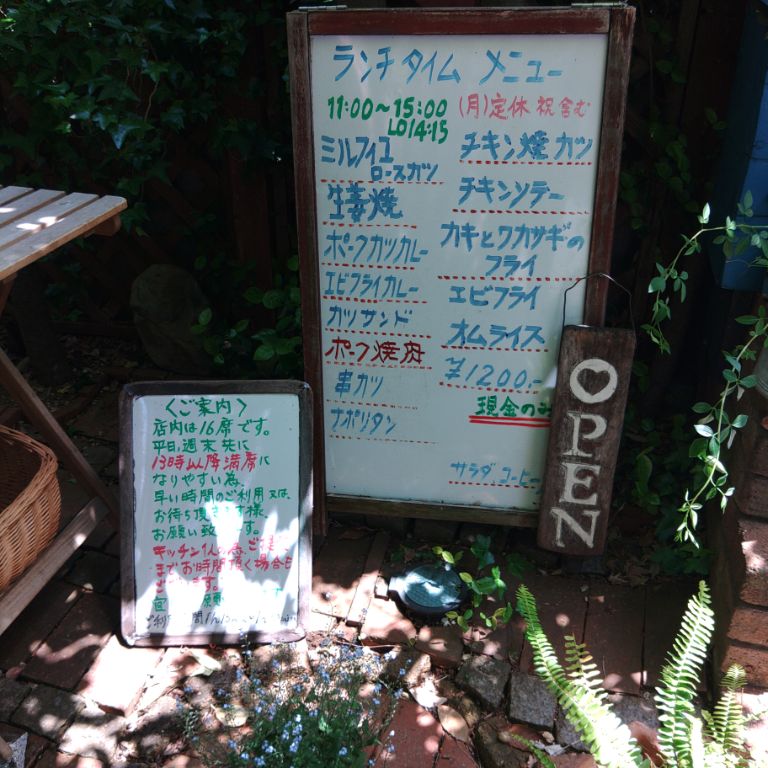 ランチタイム メニュー
11:00～15:00 (月)定休 祝含む
LO14:15
ミルフィユ
ロースカツ
生姜焼
ポークカツカレー
エビフライカレー
カツサンド
ポーク焼肉
串カツ
ナポリタン
チキン焼カツ
チキンソテー
カキとワカサギの
フライ
エビフライ
オムライス
¥1200.-
現金のみ
サラダ、コーヒー
OPEN
〈ご案内〉
店内は16席です。
平日,週末共に
13時以降満席に
なりやすい為、
早い時間のご利用又は、
お待ち頂きます様、
お願い致します。
キッチン1人の為、ご提
までお時間頂く場合も
ございます。
ご利用時間